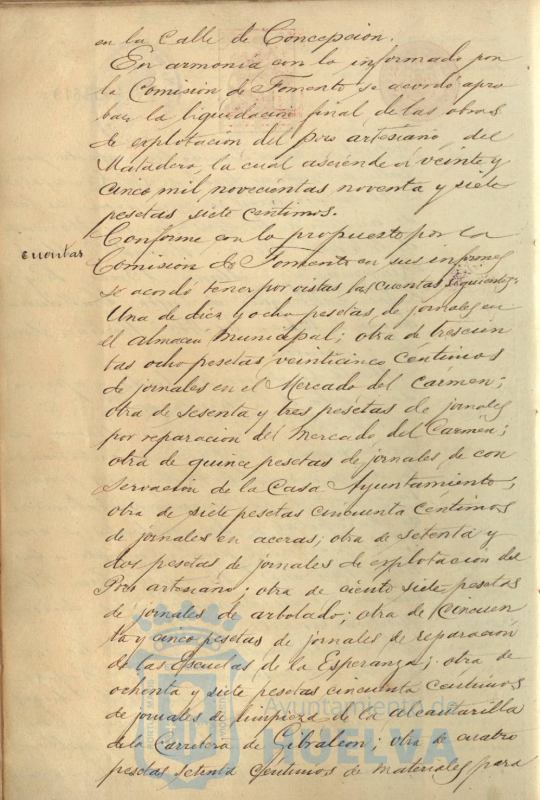 en la Calle de Concepcion.
En armonia con lo informado por
la Comision de Fomento se acordó apro
bar la liquidacion final de las obras
de explotacion del pozo artesiano del
Matadero la cual asciende a veinte y
cinco mil novecientas noventa y siete
pesetas siete centimos.
cuentas
Conforme con lo propuesto por la
Comision de Fomento en sus informes
se acordó tener por vistas las cuentas siguientes:
Una de diez y ocho pesetas de jornales en
el almacen municipal; otra de trescien
tas ocho pesetas veinticinco centimos
de jornales en el Mercado del Carmen;
otra de sesenta y tres pesetas de jornales
por reparacion del Mercado del Carmen;
otra de quince pesetas de jornales de con
servacion de la Casa Ayuntamiento;
otra de siete pesetas cincuenta centimos
de jornales en aceras; otra de setenta y
dos pesetas de jornales de explotacion del
Pozo artesiano; otra de ciento siete pesetas
de jornales de arbolado; otra de cincuen
ta y cinco pesetas de jornales de reparacion
de las Escuelas de la Esperanza; otra de
ochenta y siete pesetas cincuenta centimos
de jornales de limpieza de la alcantarilla
de la Carretera de Gibraleon; otra de cuatro
pesetas setenta centimos de materiales para
Ayuntamiento de
HUELVA